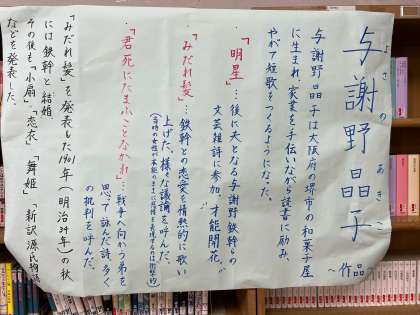 与謝野晶子
よさの あきこ
～作品
与謝野晶子は大阪府の堺市の和菓子屋
に生まれ、家業を手伝いながら読書に励み、
やがて短歌をつくるようになった。
「明星」…後に夫となる与謝野鉄幹らの
文芸雑誌に参加。才能開花。
「みだれ髪」…鉄幹との恋愛を情熱的に歌い
上げた。様々な議論を呼んだ。
「君死にたまふことなかれ」…戦争へ向かう弟を
思って詠んだ詩。多く
の批判を呼んだ。
「みだれ髪」を発表した1901年(明治34年)の秋
には鉄幹と結婚
その後も「小扇」「恋衣」「舞姫」「新訳源氏物語
などを発表した。